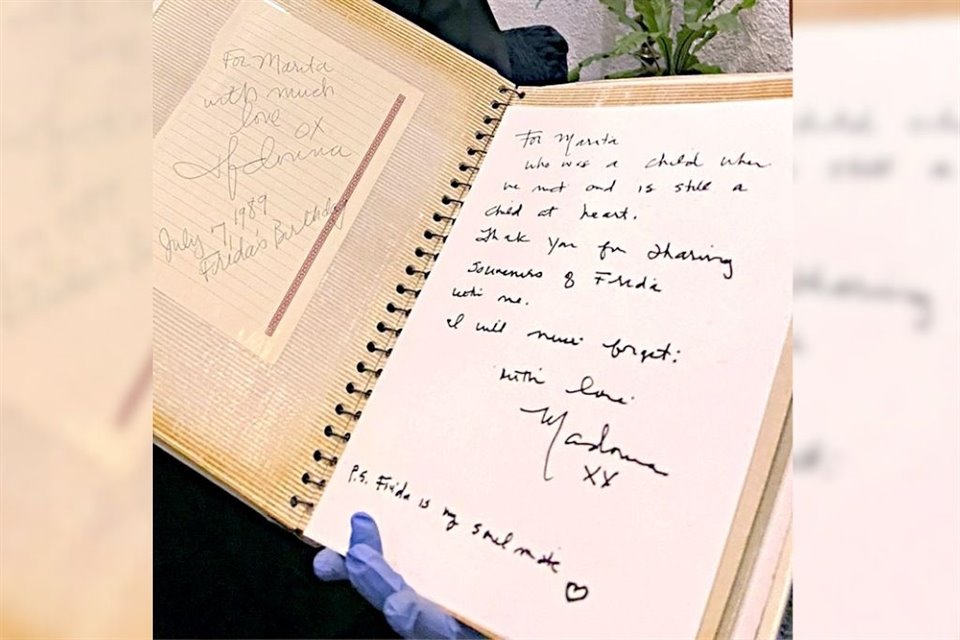 For Marita
with much
love
OX
Madonna
July 7, 1989
Frida's Birthday
For Marita
who was a child when
we met and is still a
child at heart.
Thak you for sharing
souveners of Frida
with me.
I will never forget:
with love
Madonna
XX
P.S. Frida is my soul mate